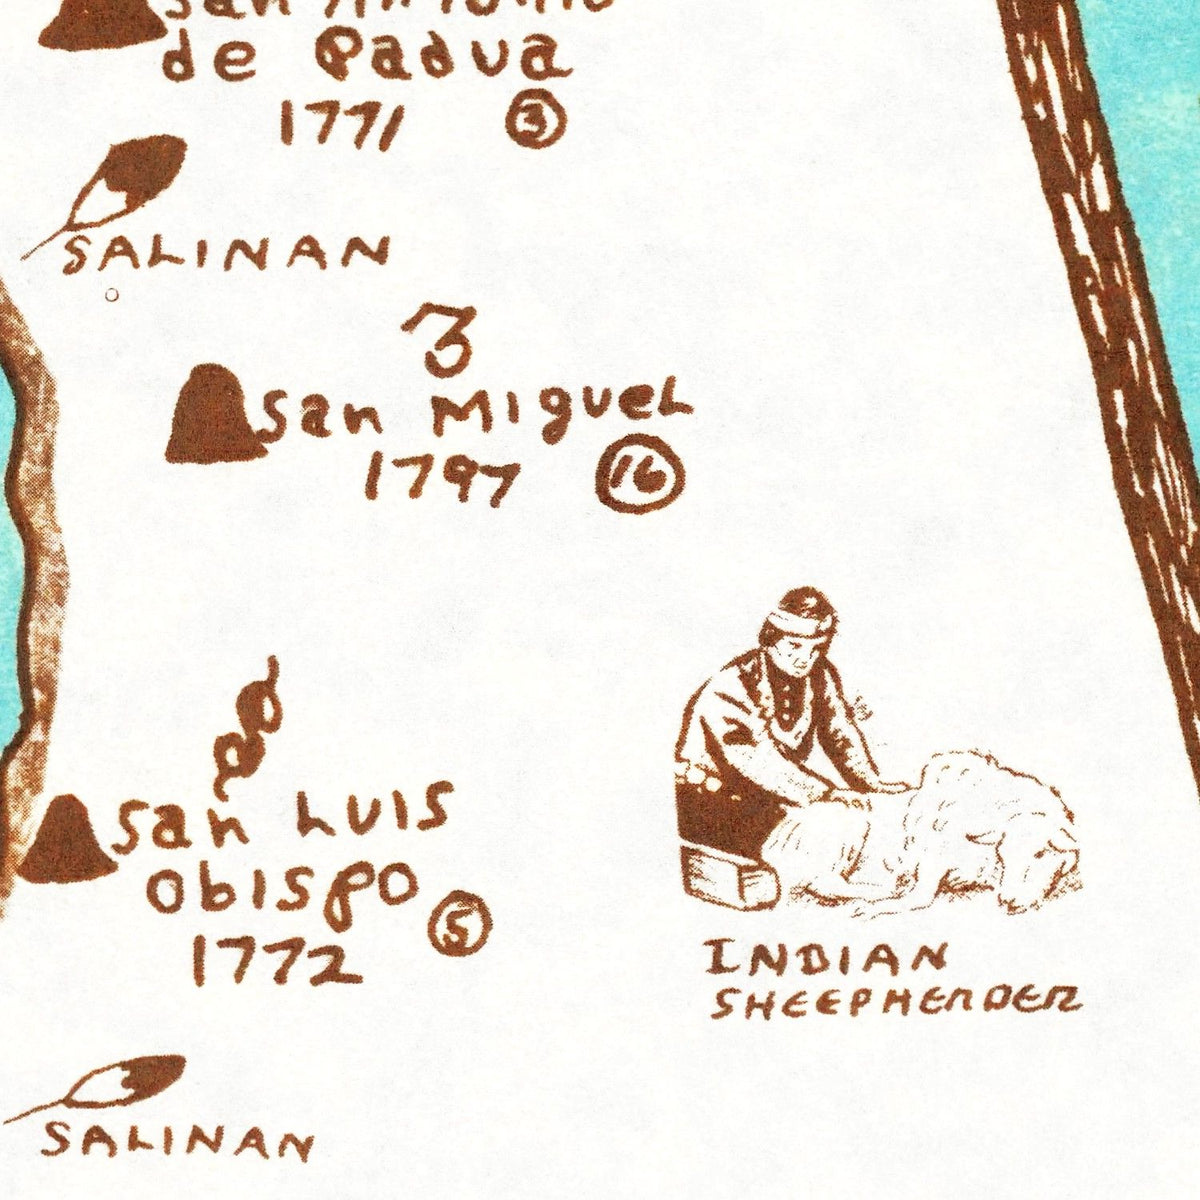 San Antonio
de Padua
1771 3
SALINAN
San Miguel
1797 16
San Luis
Obispo 5
1772
INDIAN
SHEEPHERDER
SALINAN